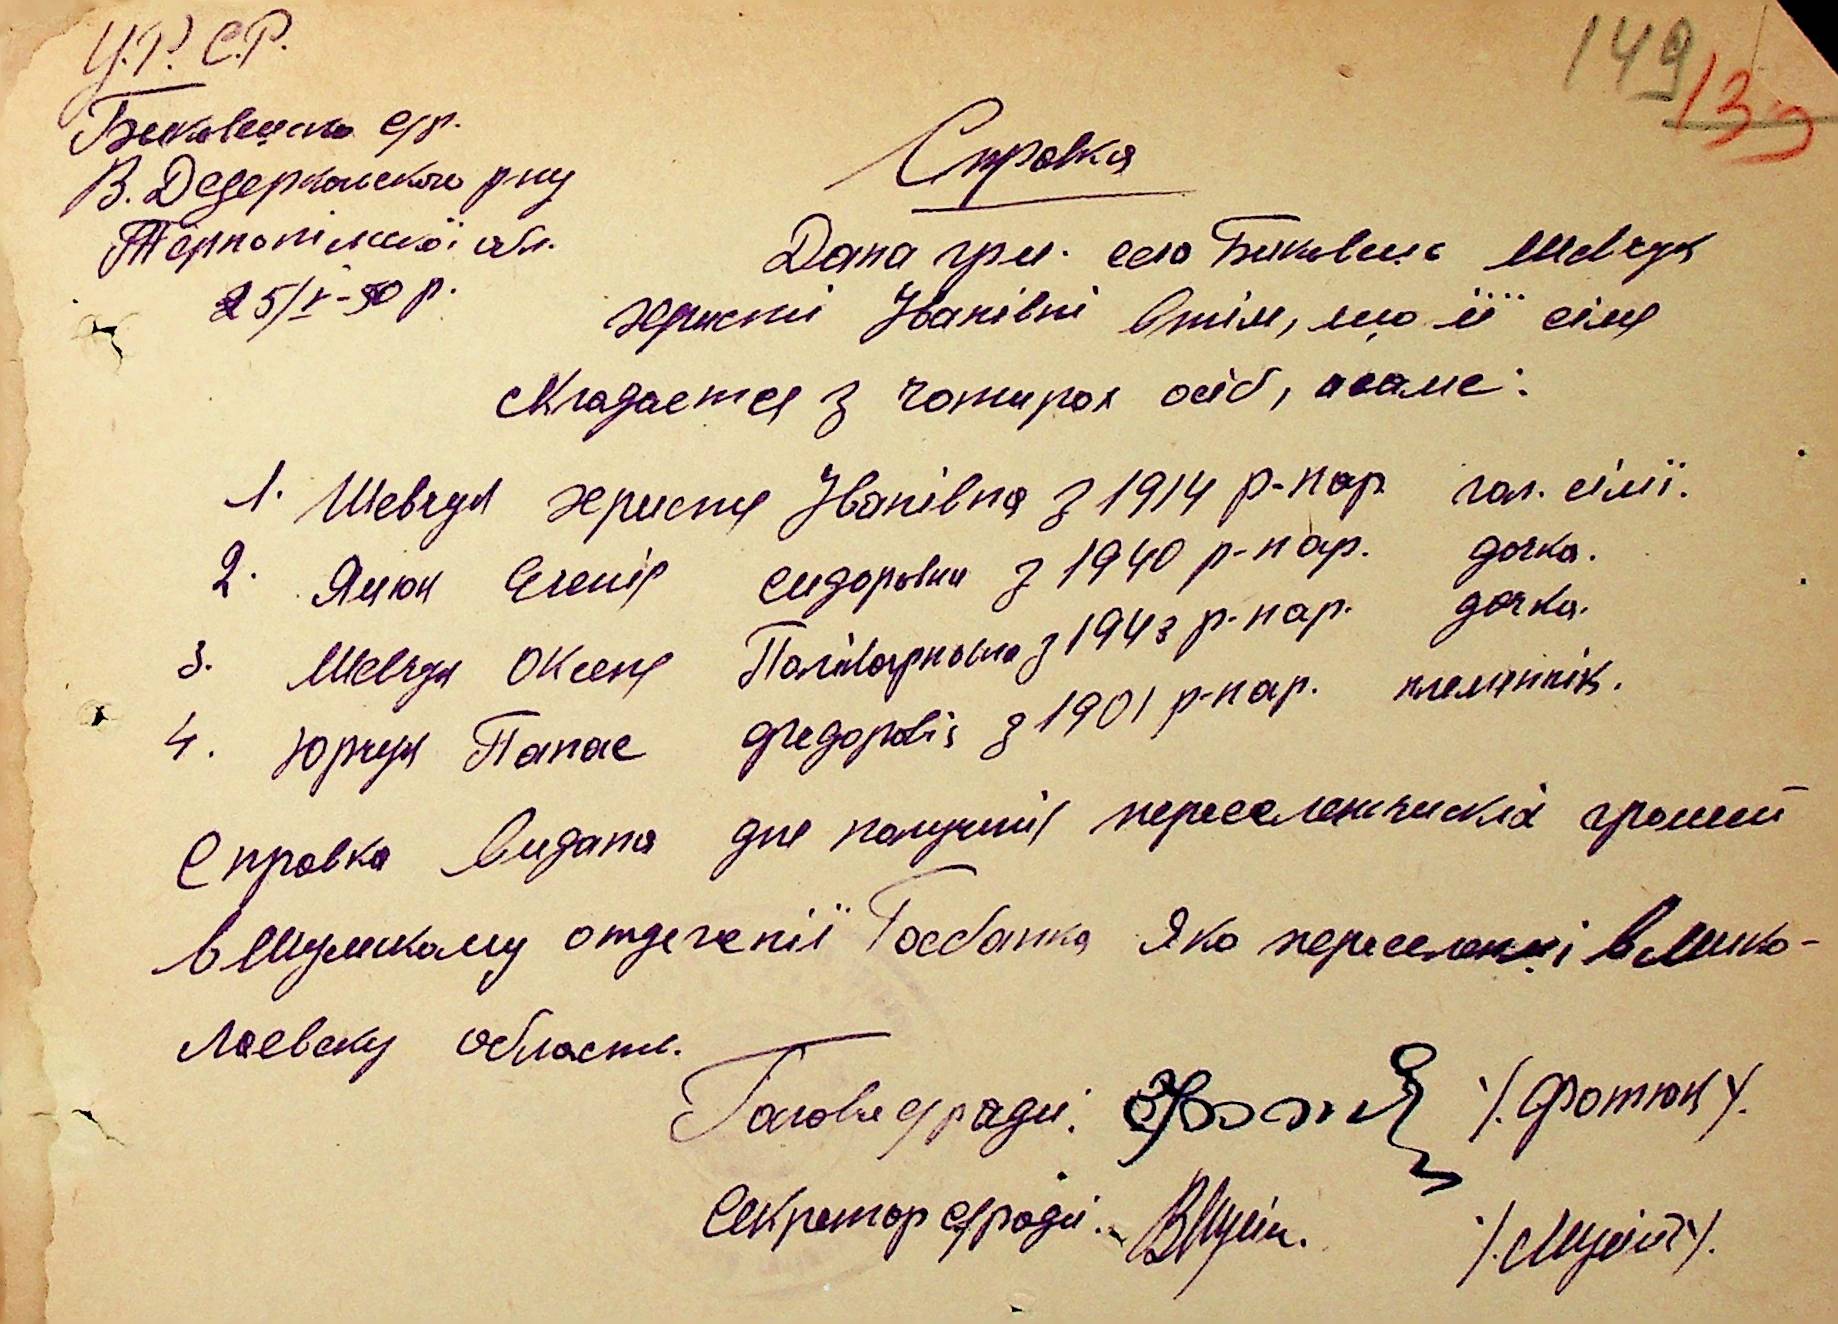 У.Р.С.Р.
149 133
Биковецька с/р.
В. Дедеркальського р-ну
Тернопільської обл.
25/V-50 р.
Справка
Дана гр-ці села Биковець Шевчук
Христі Іванівні в тім, що її сімя
складается з чотирох осіб, а саме:
1. Шевчук Христя Іванівна з 1914 р-нар гол. сімї.
2. Янюк Євгенія Сидоровна з 1940 р-нар. дочка.
3. Шевчук Оксеня Полікарповна з 1943 р-нар. дочка.
4. Юрчук Панас Федоровіч з 1901 р-нар. племінник.
Справка видана для получинія переселенчиских грошей
в Шумському отделенії Госбанка яко переселенці в Мико-
лаевску область.
Голова с/ради: /.Фотюк/.
Секретар с/ради: